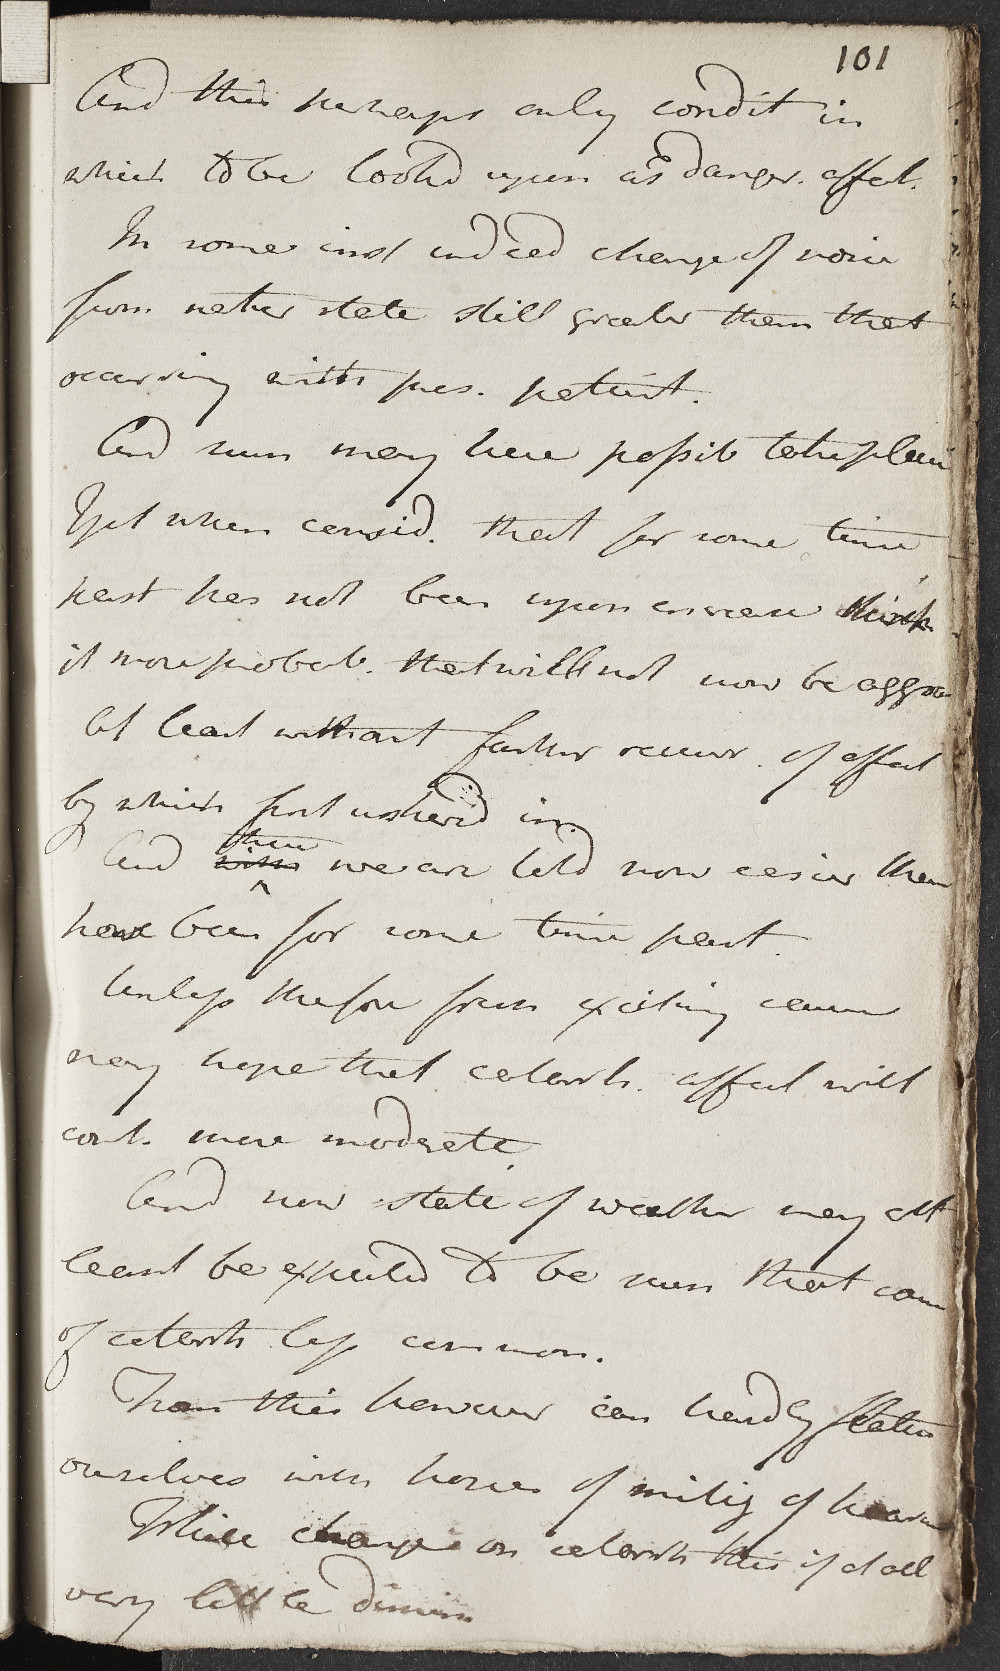 101
And this perhaps only condit in
which to be look'd upon as danger. affect.
In some inst indeed change of voice
from natur state still greater than that
occurring with pres. patient.
And even may here possib take place
Yet when consid. that for some time
past has not been upon increase think
it more probab. that will not now be aggra
At least without farther recurr. of affect
by which first usher'd in.
And then we are told now easier than
have been for some time past.
Unless therefore from exciting cause
may hope that catarrh. affect will
cont. more moderate.
And now state of weather may at
least be expected to be such that
of catarrh less common.
Than this however can hardly flatter
ourselves with hopes of mitig of
While change on catarrh this if at all
very little dimin